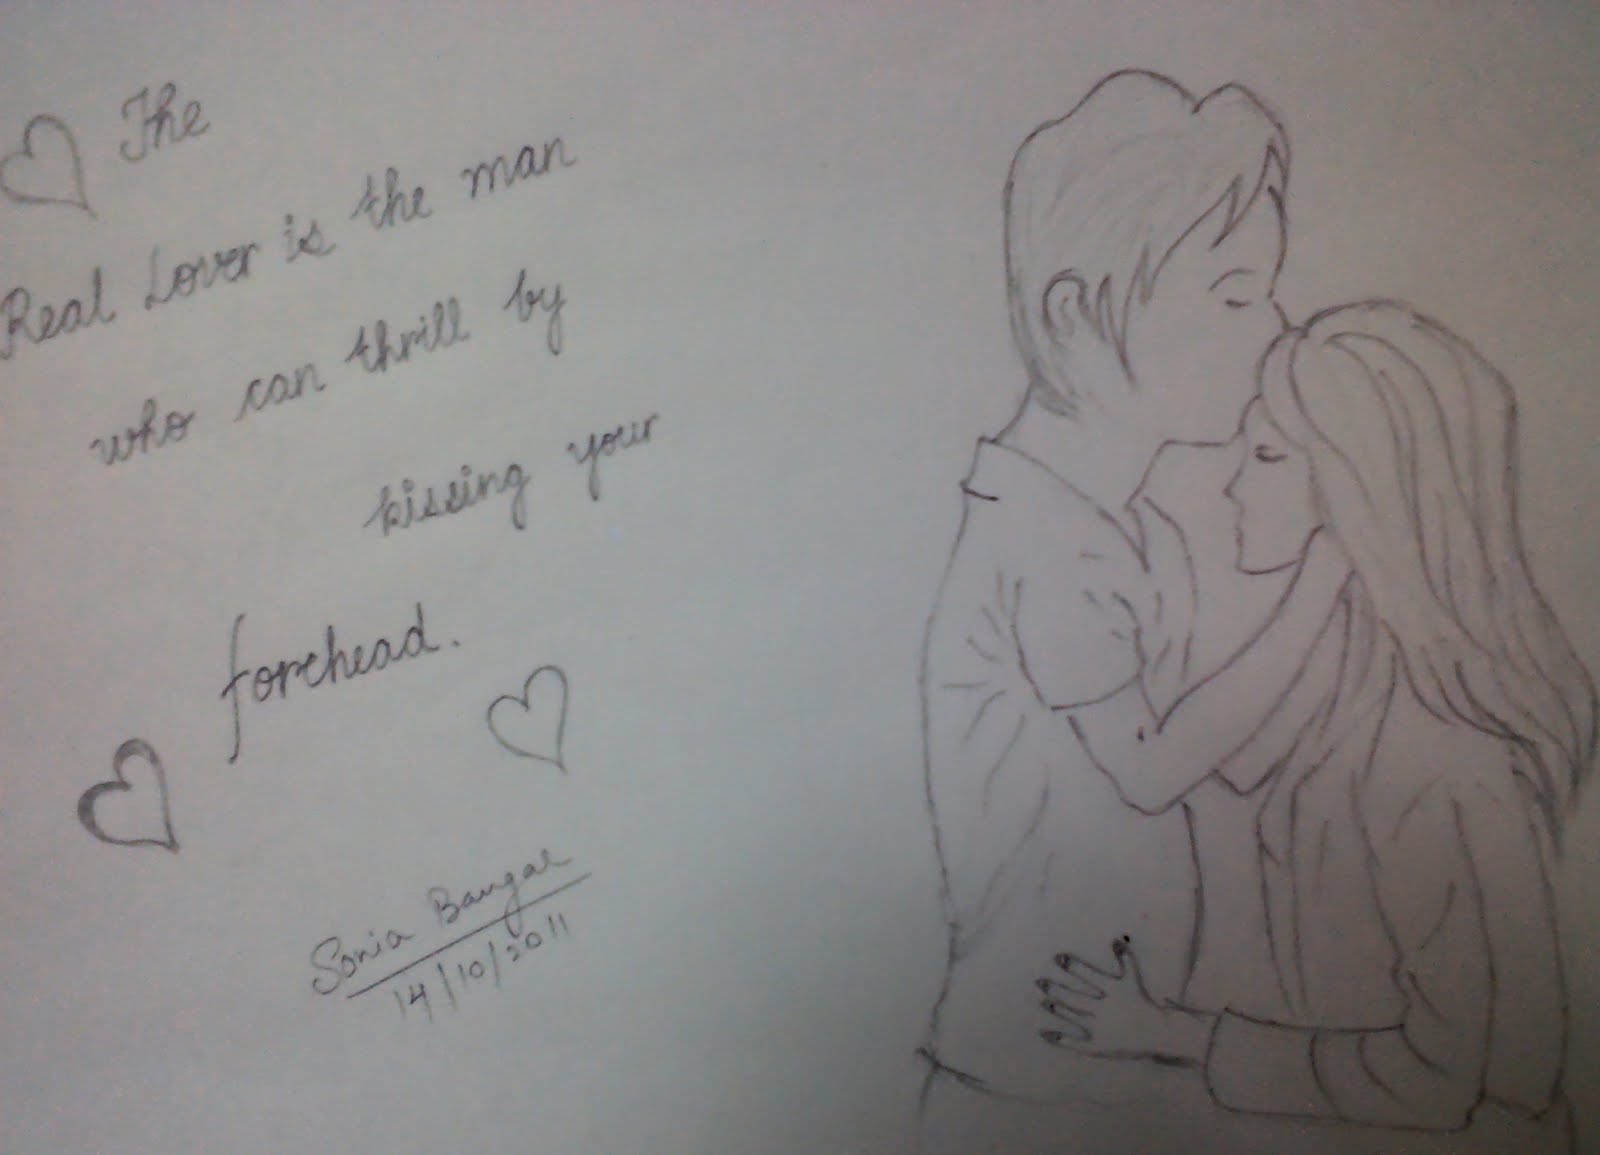 The
Real Lover is the man
who can thrill by
kissing your
forehead.
Sonia Bangar
14/10/2011